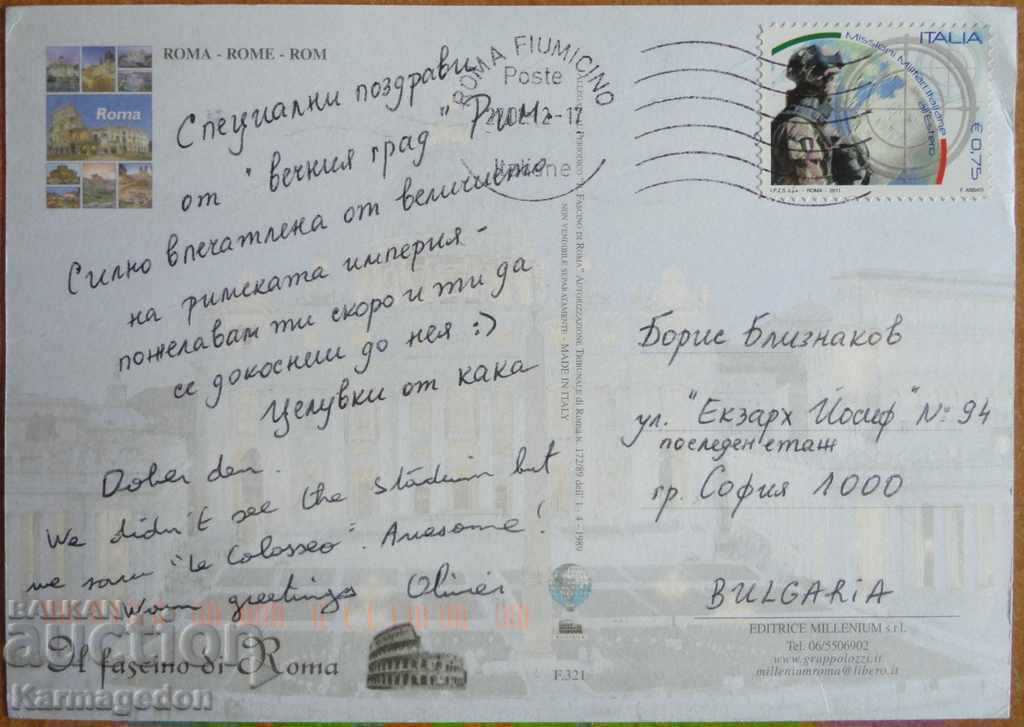 ROMA - ROME - ROM
Roma
Специални поздрави
от "вечния град" Рим.
Силно впечатлена от величието
на римската империя -
пожелавам ти скоро и ти да
се докоснеш до нея :)
Целувки от кака
Dober den.
We didn't see the stadium but
we saw "le Colosseo". Awesome!
Warm greetings Olivier
Il fascino di Roma
ROMA FIUMICINO
Poste
Italiane
Missioni Militari Italiane all'Estero
ITALIA
€ 0,75
I.P.Z.S. S.p.A. - ROMA - 2011
F. ABBATI
Periodico "Il Fascino di Roma" Autorizzazione Tribunale di Roma n. 172/89 dell' 1-4-1989
NON VENDIBILE SEPARATAMENTE - MADE IN ITALY
Борис Близнаков
ул. "Екзарх Йосиф" № 94
последен етаж
гр. София 1000
BULGARIA
EDITRICE MILLENIUM s.r.l.
Tel. 06/5506902
www.grappolozzi.it
milleniumroma@libero.it
F.321
BALKAN
auction
Karmagedon